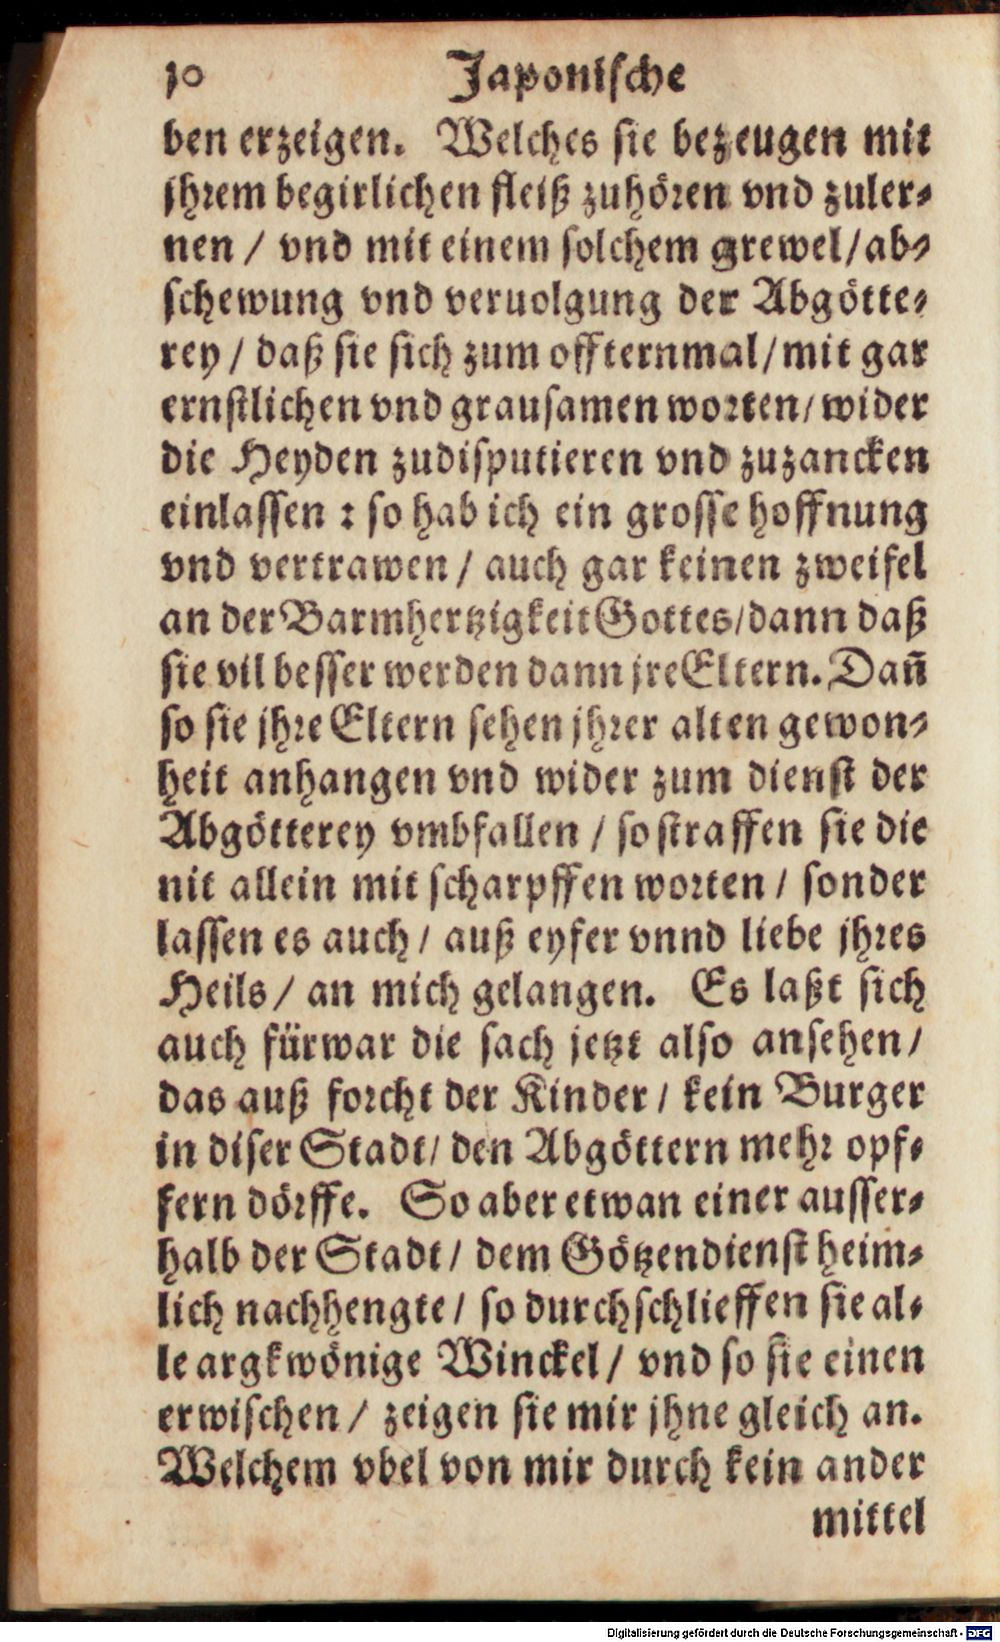 10 Japonische
ben erzeigen. Welches sie bezeugen mit
jhrem begirlichen fleiß zuhören vnd zuler-
nen / vnd mit einem solchem grewel/ab-
schewung vnd veruolgung der Abgötte-
rey / daß sie sich zum offternmal/mit gar
ernstlichen vnd grausamen worten/wider
die Heyden zudisputieren vnd zuzancken
einlassen : so hab ich ein grosse hoffnung
vnd vertrawen / auch gar keinen zweifel
an der Barmhertzigkeit Gottes/dann daß
sie vil besser werden dann jre Eltern. Dañ
so sie jhre Eltern sehen jhrer alten gewon-
heit anhangen vnd wider zum dienst der
Abgötterey vmbfallen / so straffen sie die
nit allein mit scharpffen worten / sonder
lassen es auch / auß eyfer vnnd liebe jhres
Heils / an mich gelangen. Es laßt sich
auch fürwar die sach jetzt also ansehen /
das auß forcht der Kinder / kein Burger
in diser Stadt/ den Abgöttern mehr opf-
fern dörffe. So aber etwan einer ausser-
halb der Stadt / dem Götzendienst heim-
lich nachhengte / so durchschlieffen sie al-
le argkwönige Winckel / vnd so sie einen
erwischen / zeigen sie mir jhne gleich an.
Welchem vbel von mir durch kein ander
mittel
Digitalisierung gefördert durch die Deutsche Forschungsgemeinschaft - DFG